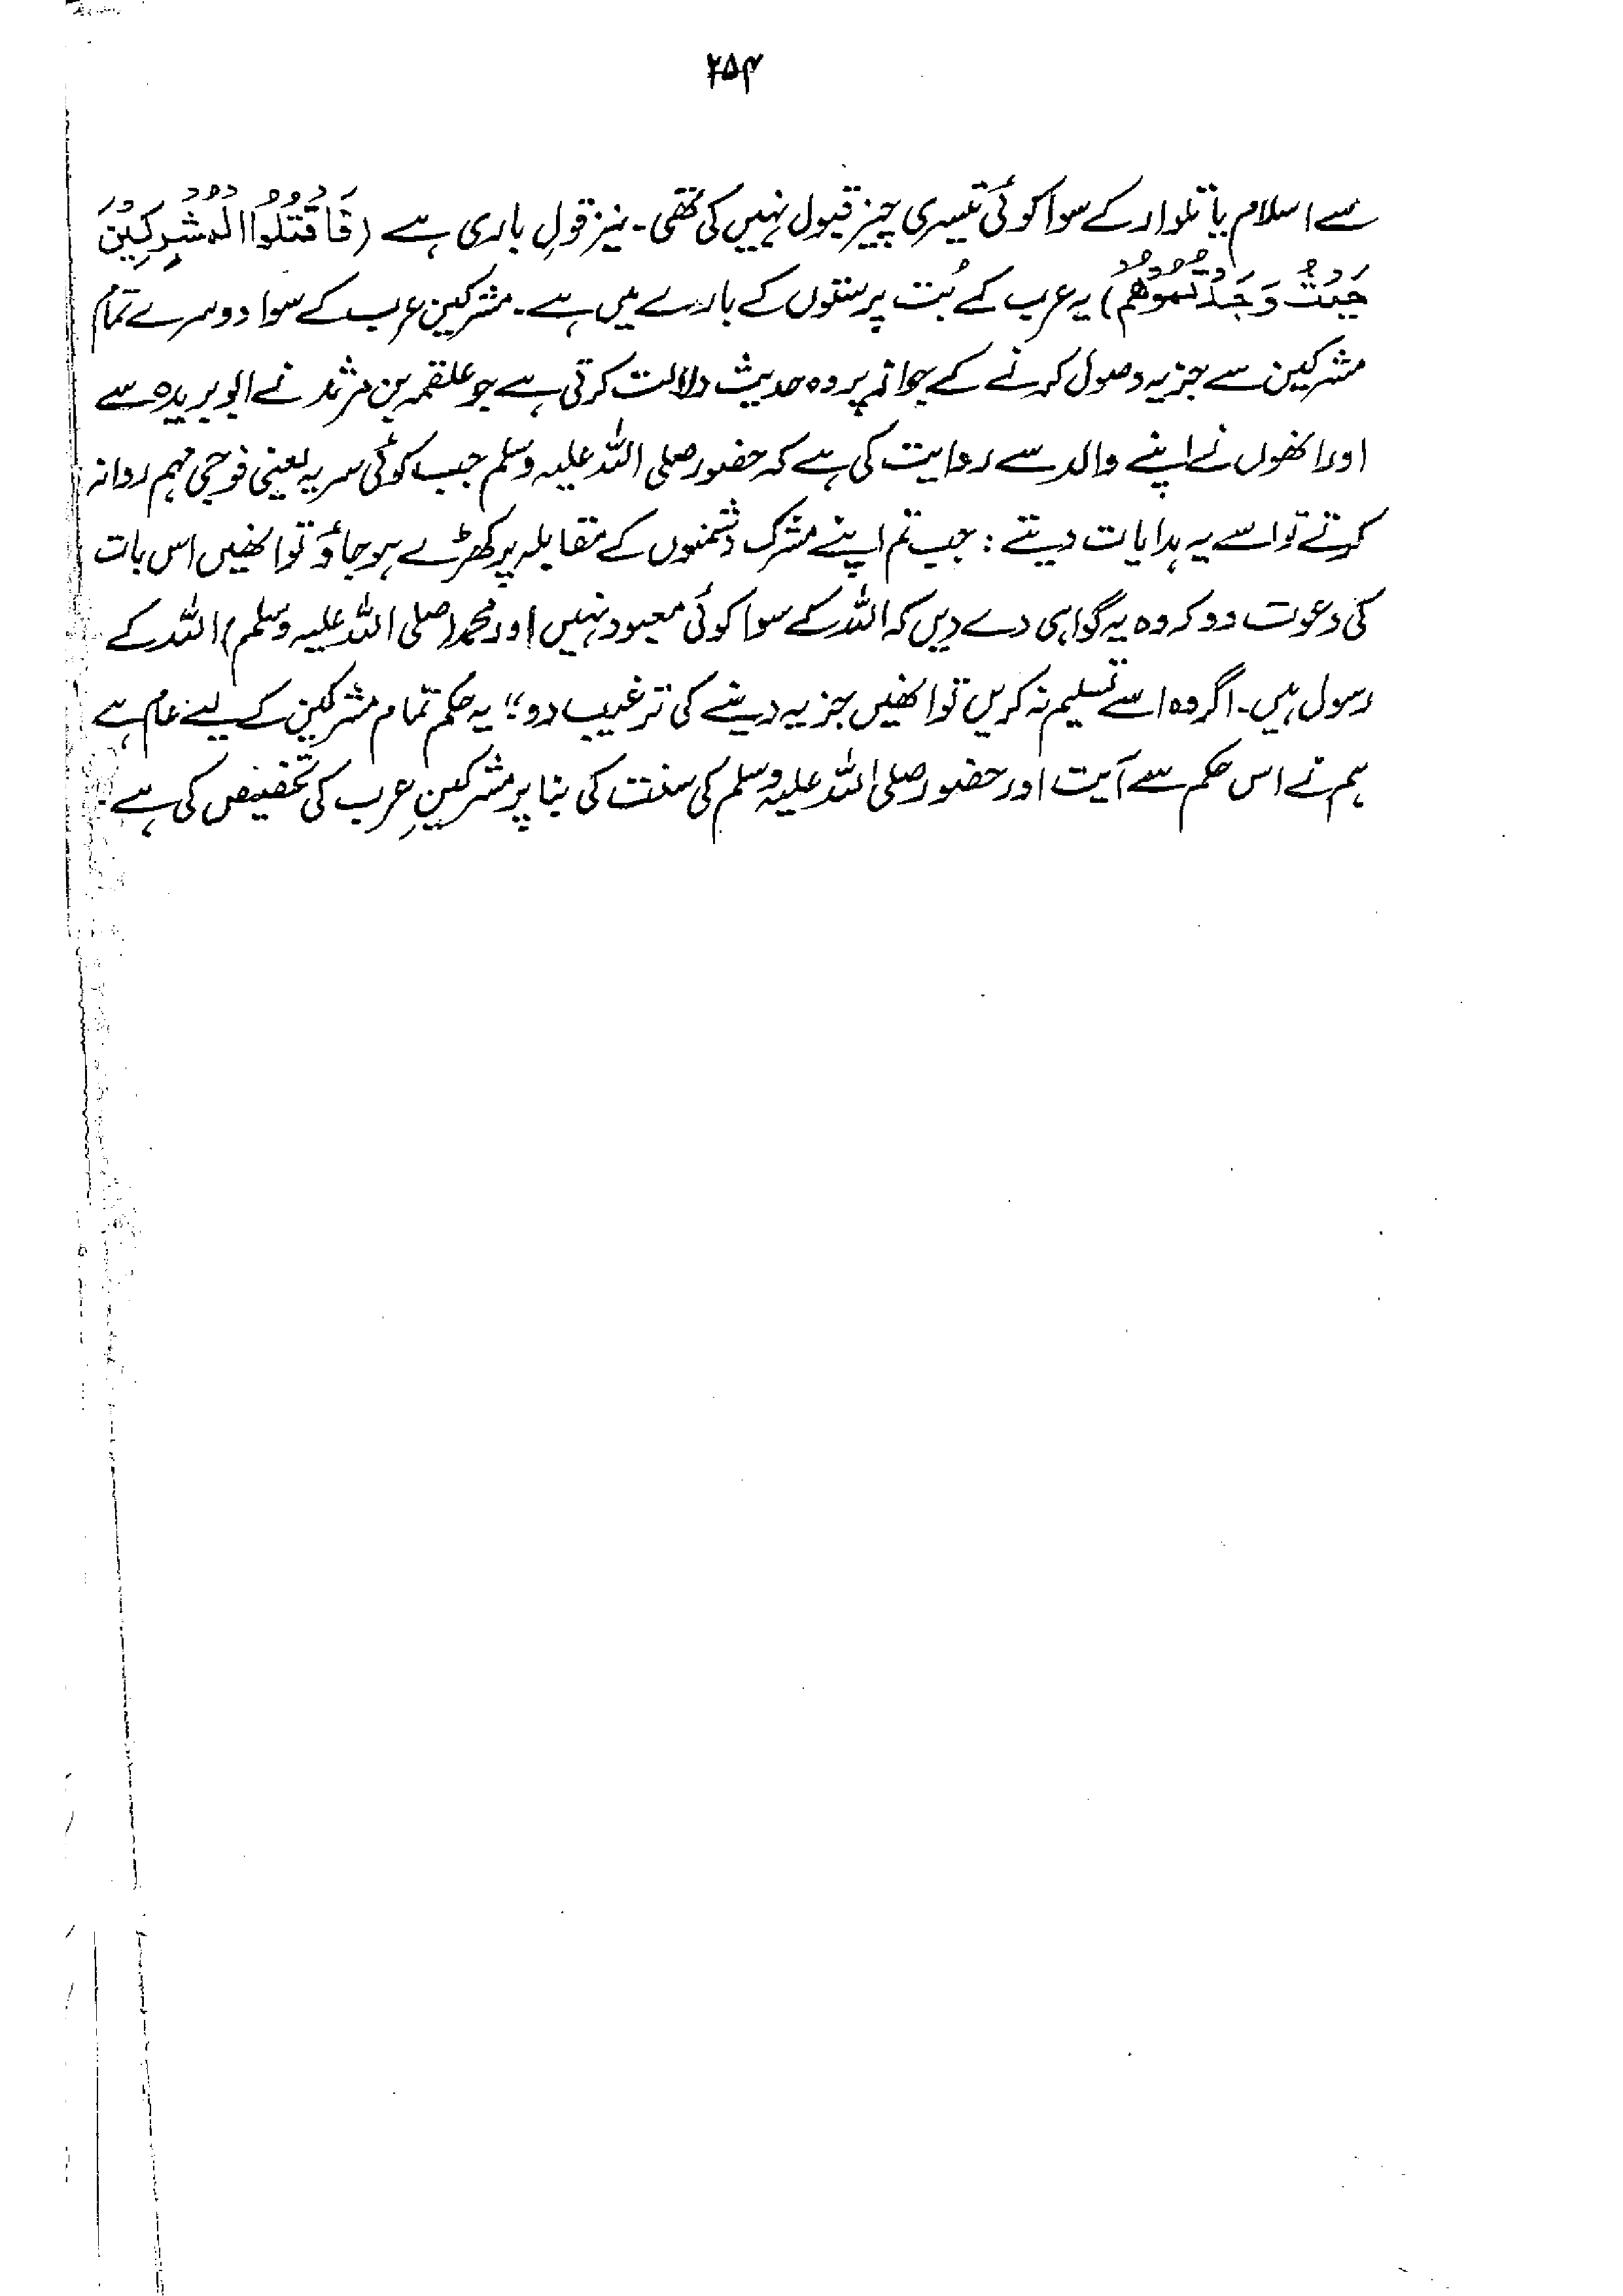 ۲۵۴
سے اسلام یا تلوار کے سوا کوئی تیسری چیز قبول نہیں کی تھی۔ نیز قولِ باری ہے (فَاقْتُلُوا الْمُشْرِكِيْنَ
حَيْثُ وَجَدْتُمُوْهُمْ) یہ عرب کے بُت پرستوں کے بارے میں ہے۔ مشرکین عرب کے سوا دوسرے تمام
مشرکین سے جزیہ وصول کرنے کے جواز پر وہ حدیث دلالت کرتی ہے جو علقمہ بن مرثد نے ابو بریدہ سے
اور انھوں نے اپنے والد سے روایت کی ہے کہ حضور صلی اللہ علیہ وسلم جب کوئی سریہ یعنی فوجی مہم روانہ
کرتے تو اسے یہ ہدایات دیتے : جب تم اپنے مشرک دشمنوں کے مقابلہ پر کھڑے ہو جاؤ تو انھیں اس بات
کی دعوت دو کہ وہ یہ گواہی دے دیں کہ اللہ کے سوا کوئی معبود نہیں اور محمد (صلی اللہ علیہ وسلم) اللہ کے
رسول ہیں۔ اگر وہ اسے تسلیم نہ کریں تو انھیں جزیہ دینے کی ترغیب دو" یہ حکم تمام مشرکین کے لیے عام ہے
ہم نے اس حکم سے آیت اور حضور صلی اللہ علیہ وسلم کی سنت کی بنا پر مشرکینِ عرب کی تخصیص کی ہے۔